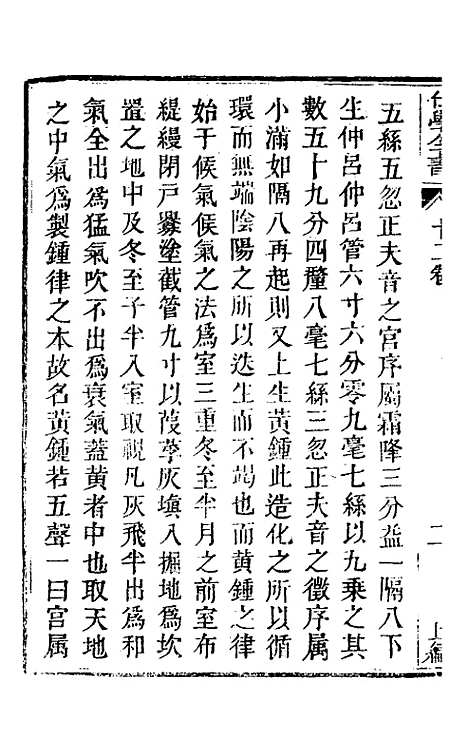 五絲五忽正夫音之宮序屬霜降三分益一隔八下
生仲呂仲呂管六寸六分零九毫七絲以九乘之其
數五十九分四釐八毫七絲三忽正夫音之徵序屬
小滿如隔八再起則又上生黃鍾此造化之所以循
環而無端陰陽之所以迭生而不竭也而黃鍾之律
始于候氣候氣之法爲室三重冬至半月之前室布
緹縵閉戶釁塗截管九寸以葭莩灰塡入掘地爲坎
置之地中及冬至子半入室取視凡灰飛半出爲和
氣全出爲猛氣吹不出爲衰氣蓋黃者中也取天地
之中氣爲製鍾律之本故名黃鍾若五聲一曰宮属
學全書
十二卷
二
上編